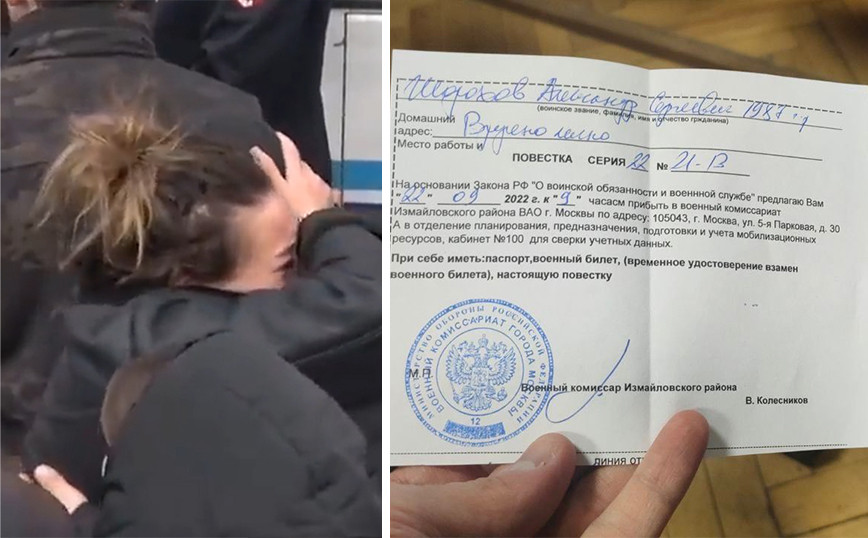 Шорохов Александр Сергеевич 1987 г
(воинское звание, фамилия, имя и отчество гражданина)
Домашний
адрес: Вручено лично
Место работы и
ПОВЕСТКА СЕРИЯ 22 № 21-В
На основании Закона РФ "О воинской обязанности и военнной службе" предлагаю Вам
"22" 09 2022 г. к "9" часасм прибыть в военный комиссариат
Измайловского района ВАО г. Москвы по адресу; 105043, г. Москва, ул. 5-я Парковая, д. 30
А в отделение планирования, предназначения, подготовки и учета мобилизационных
ресурсов, кабинет №100 для сверки учетных данных.
При себе иметь:паспорт,военный билет, (временное удостоверение взамен
военного билета), настоящую повестку
МИНИСТЕРСТВО ОБОРОНЫ РОССИЙСКОЙ ФЕДЕРАЦИИ
ВОЕННЫЙ КОМИССАРИАТ ГОРОДА МОСКВЫ
12
М.П.
Военный комиссар Измайловского района
В. Колесников
ЛИНИЯ